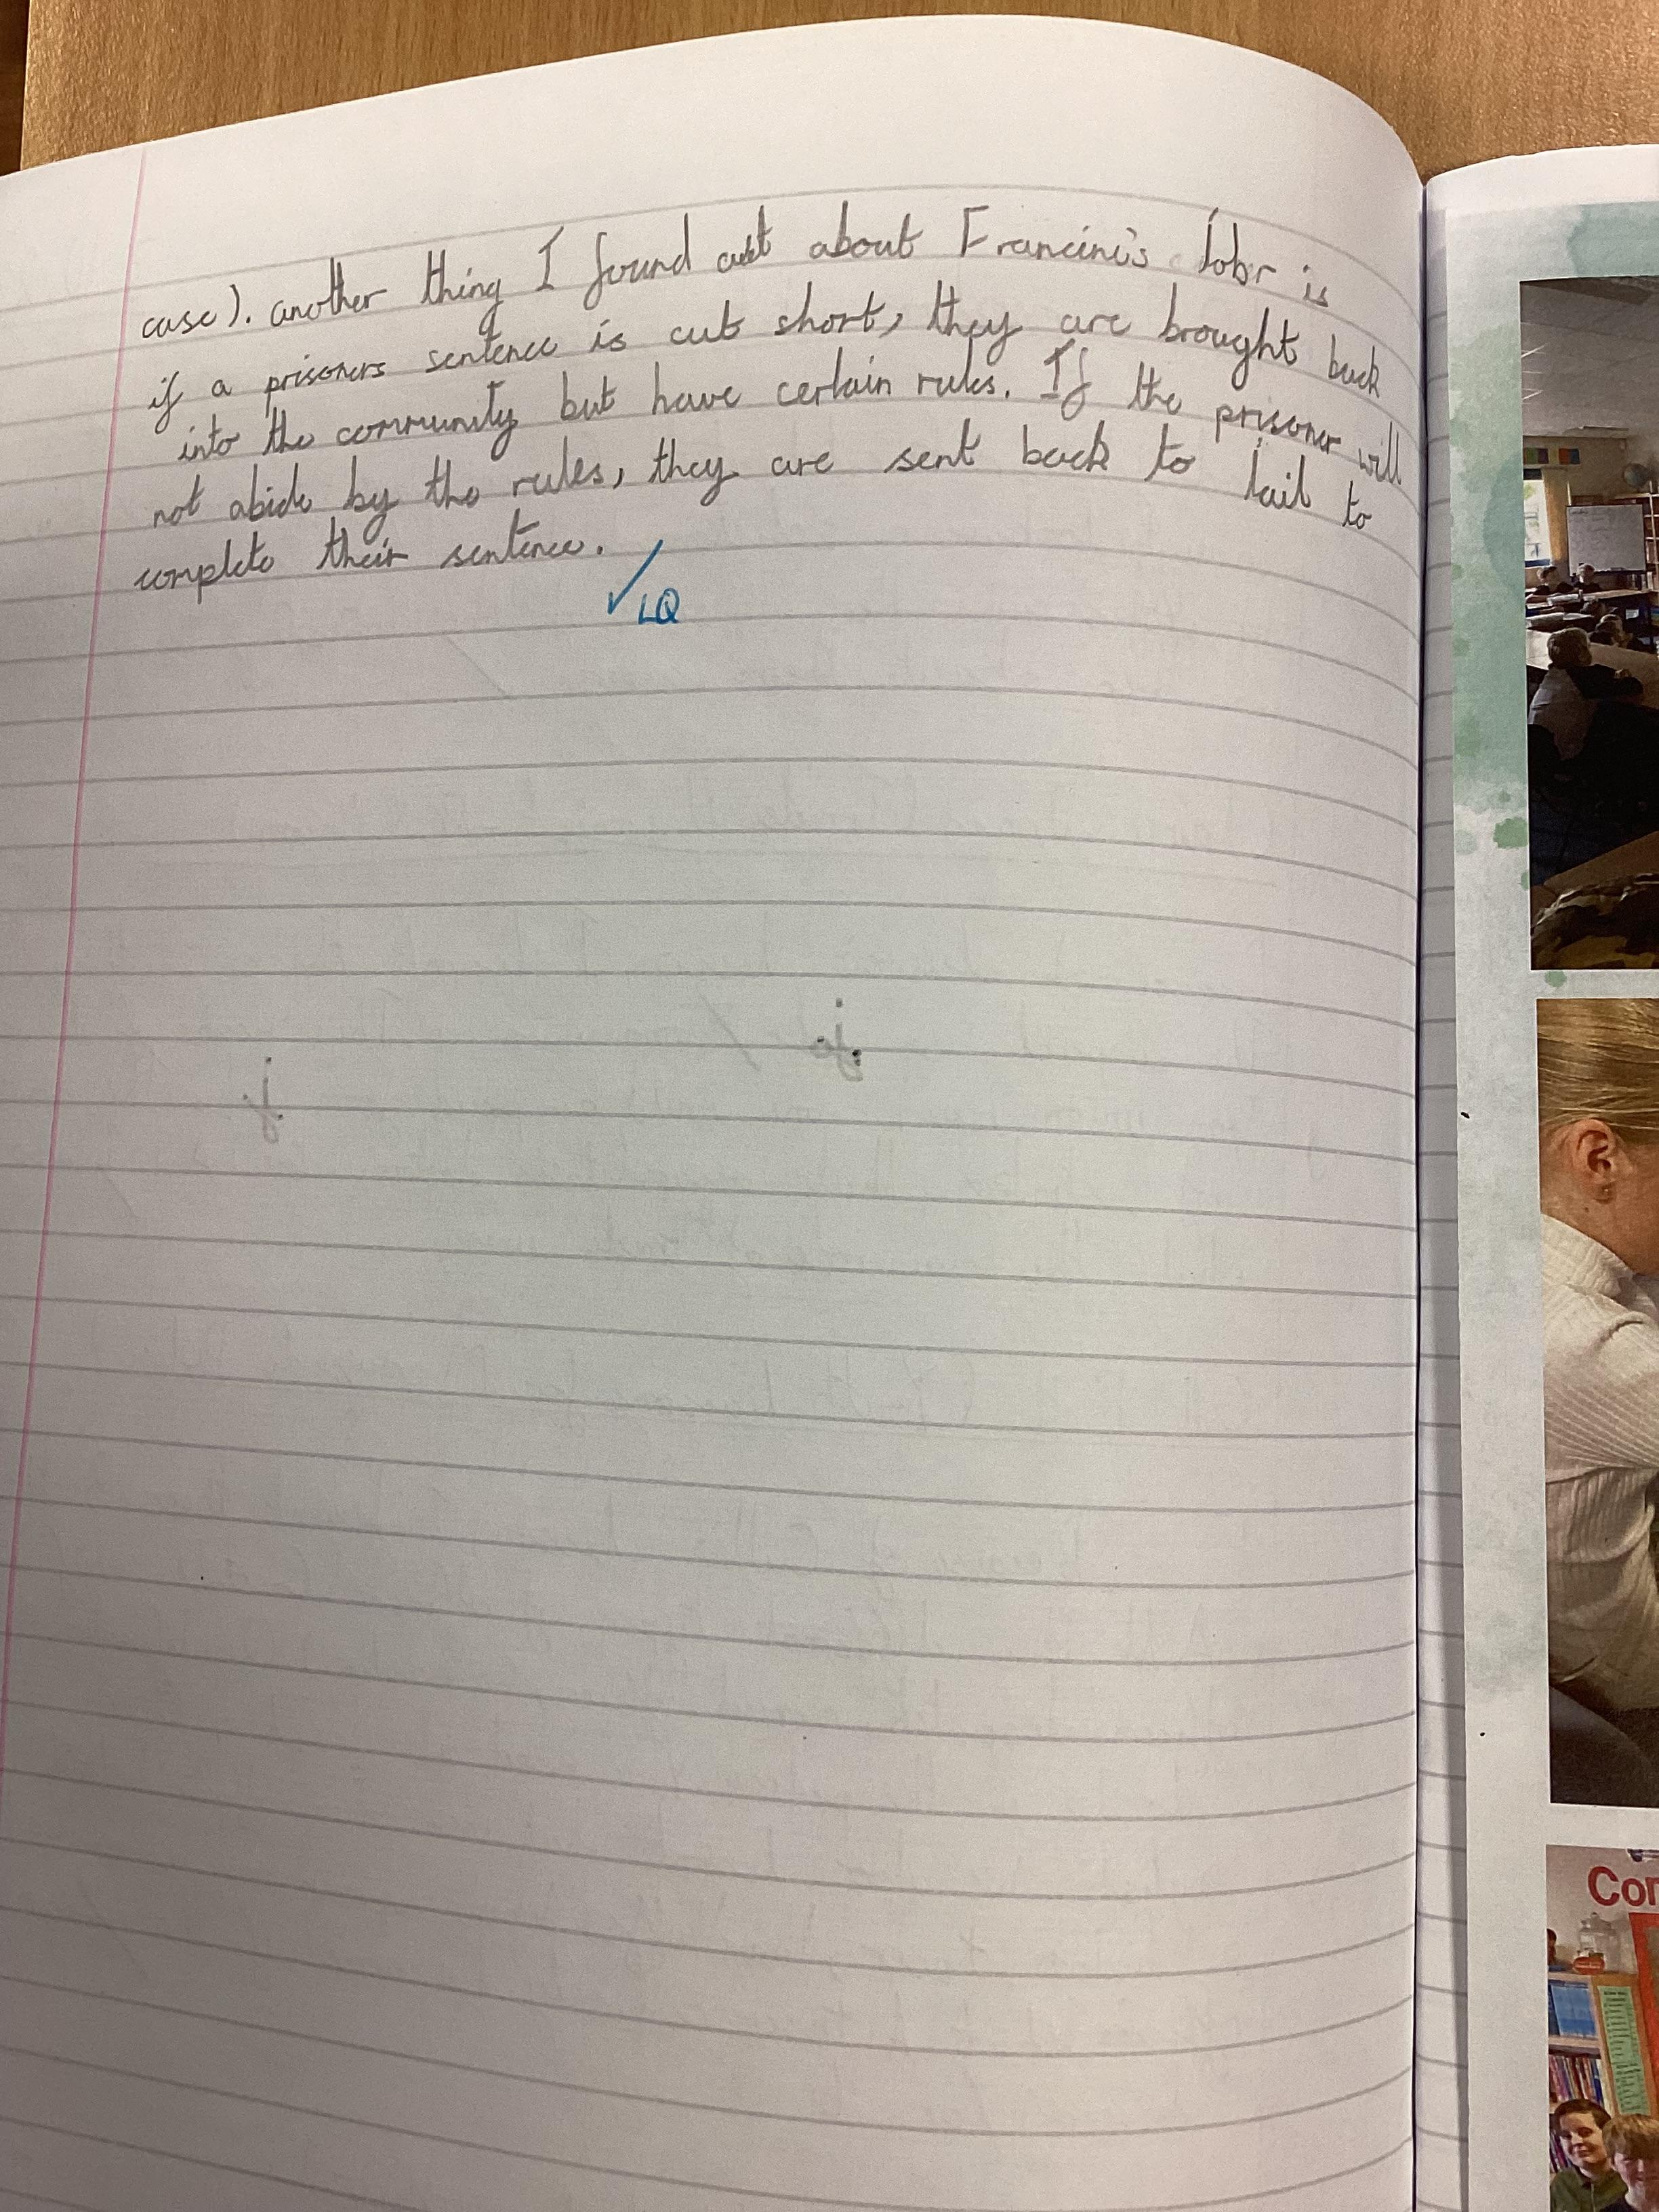 case). another thing I found out about Francini's is
if a prisoners sentence is cut short, they are brought back
into the community but have certain rules. If the prisoner will
not abide by the rules, they are sent back to jail to
complete their sentence.
✓ LQ
j
j
Con